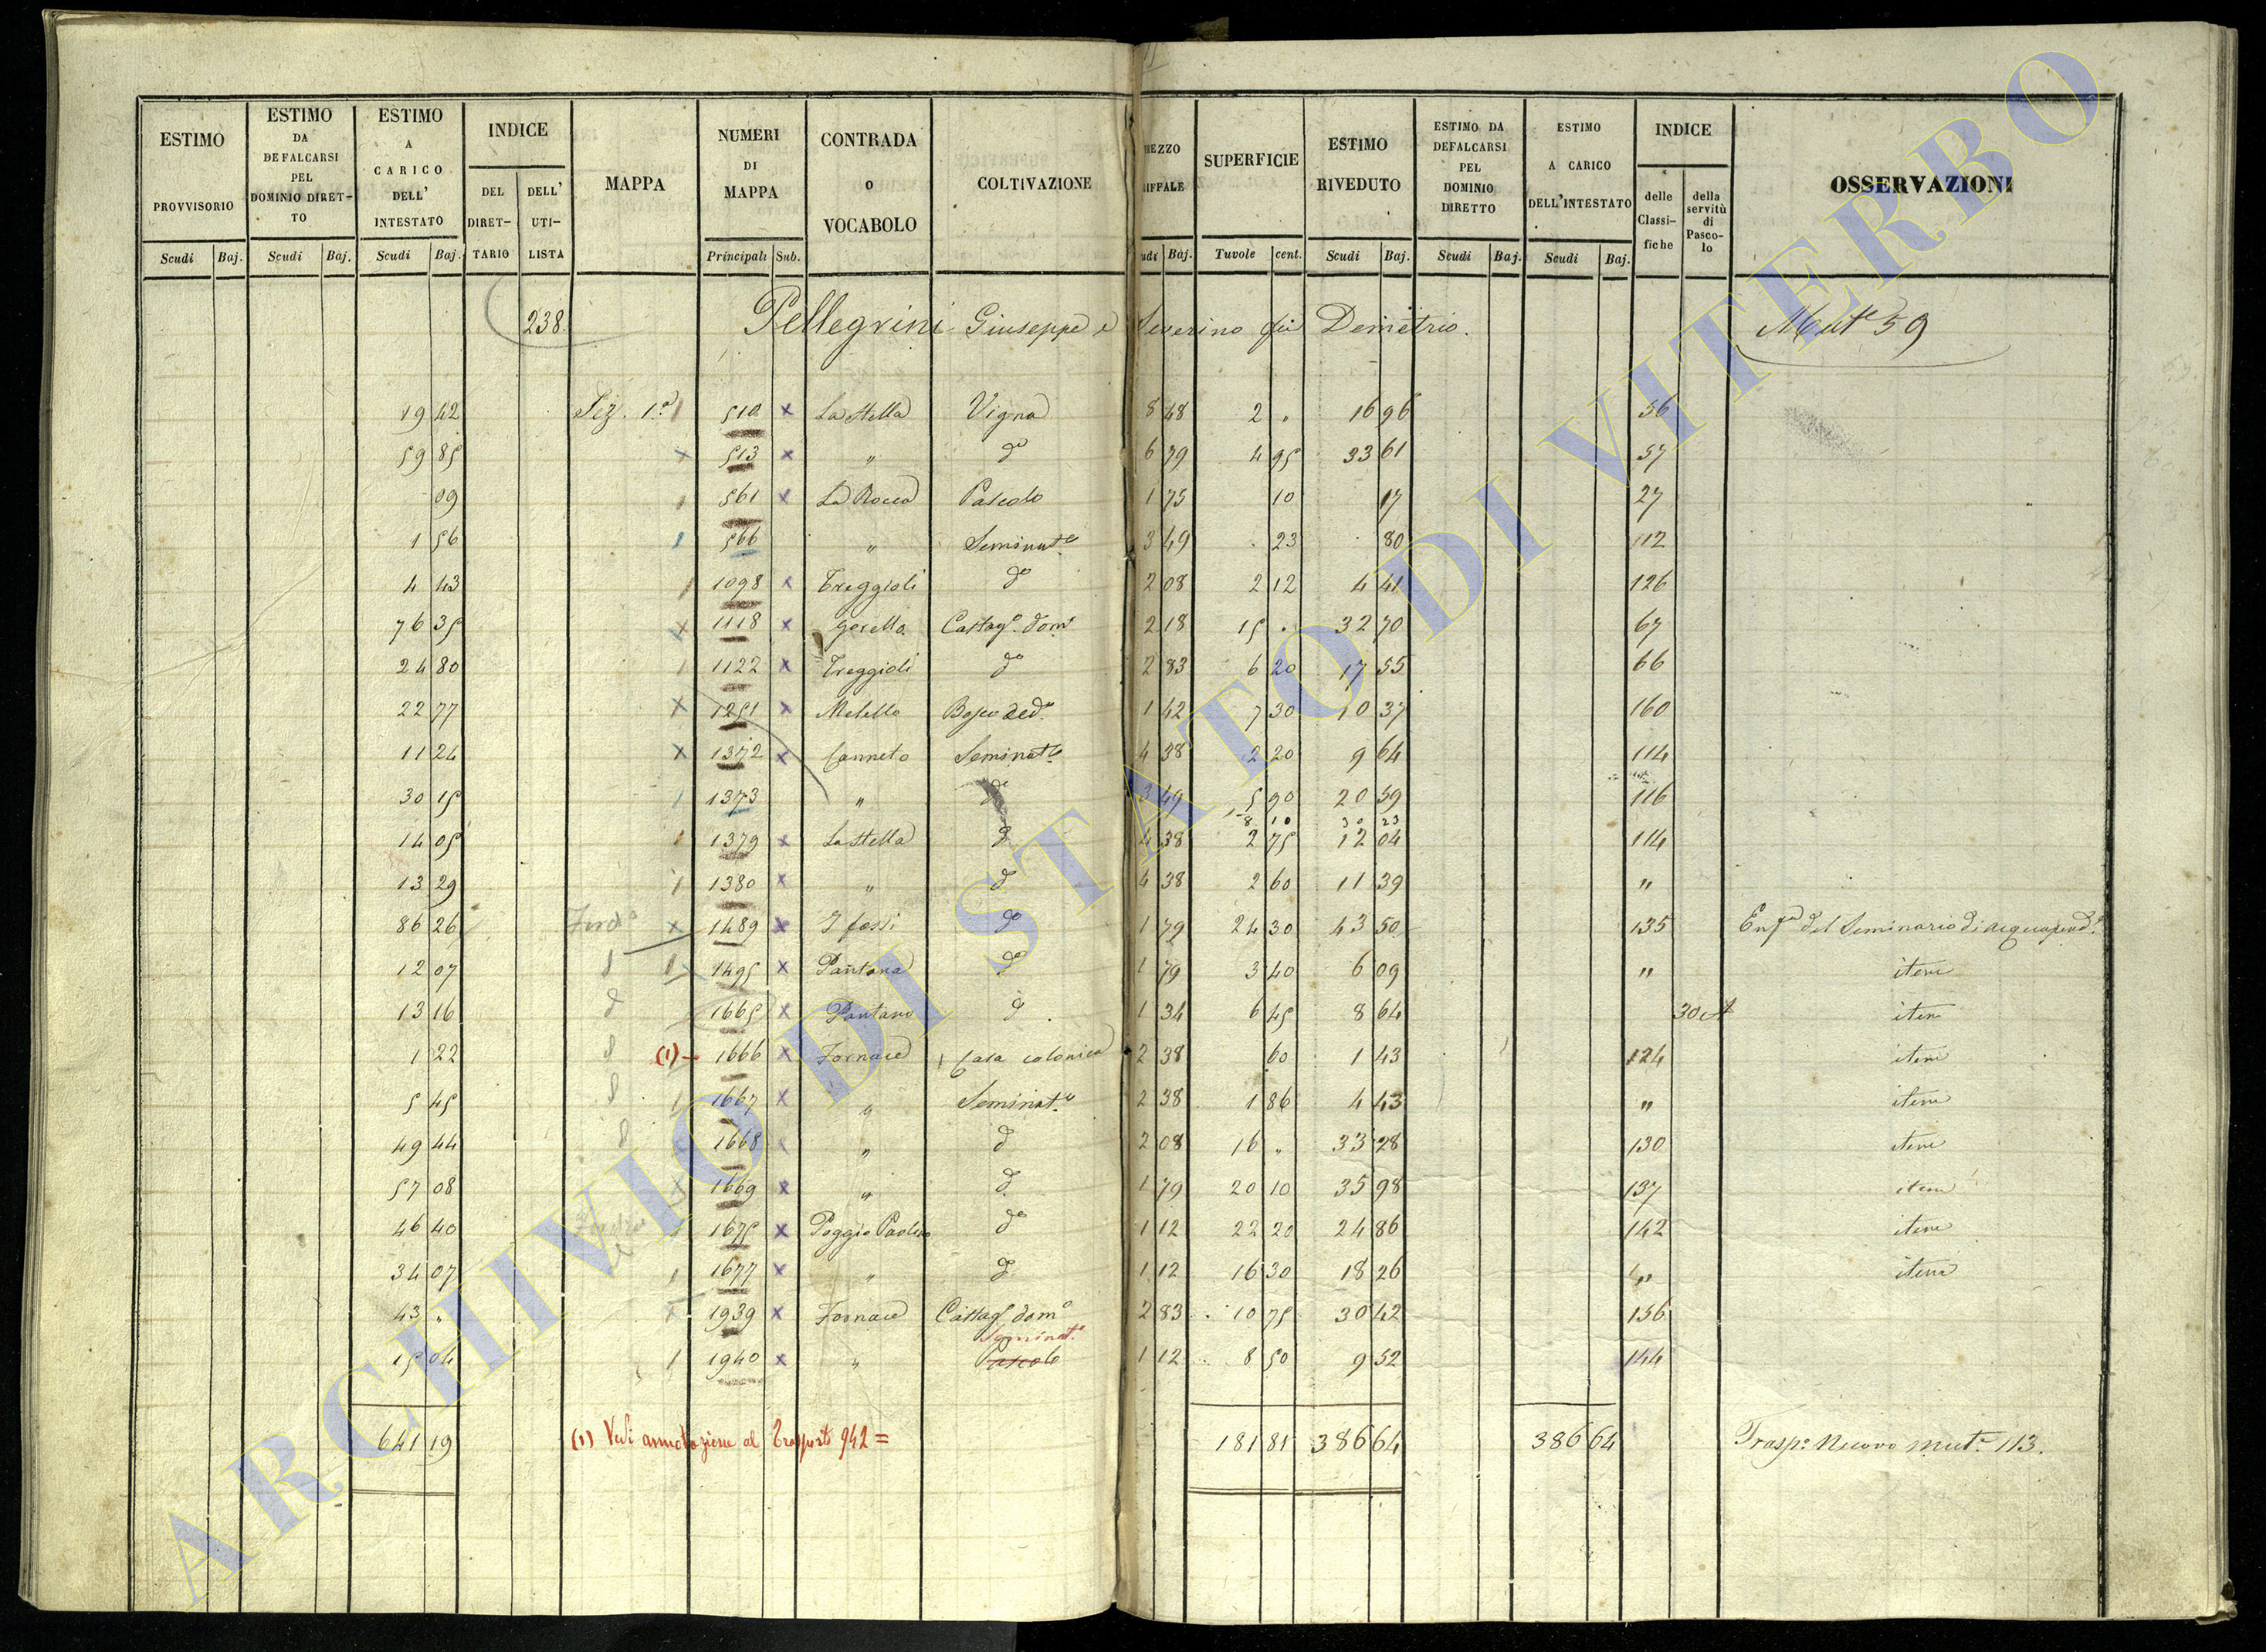 ESTIMO PROVVISORIO | ESTIMO DA DEFALCARSI PEL DOMINIO DIRET-TO | ESTIMO A CARICO DELL' INTESTATO | INDICE DEL DIRET-TARIO | DELL' UTI-LISTA | MAPPA | NUMERI DI MAPPA | CONTRADA O VOCABOLO | COLTIVAZIONE | SUPERFICIE | ESTIMO RIVEDUTO | ESTIMO DA DEFALCARSI PEL DOMINIO DIRETTO | ESTIMO A CARICO DELL'INTESTATO | INDICE delle Classi-fiche | della servitù di Pasco-lo | OSSERVAZIONI
Scudi Baj. | Scudi Baj. | Scudi Baj. | Principali Sub. | Baj. | Tuvole cent. | Scudi Baj. | Scudi Baj. | Scudi Baj.
238. Pellegrini Giuseppe e Severino fù Demetrio. Mut.e 59
19 42 Sez. 1.a 510 x La Stella Vigna 8 48 2 " 16 96 56
59 85 x 513 x " do 6 79 4 95 33 61 57
09 561 x La Rocca Pascolo 1 75 10 17 27
1 56 566 " Seminat.o 3 49 23 80 112
4 43 1098 x Treggioli do 2 08 2 12 4 41 126
76 35 x 1118 x Gorello Castag.o dom.o 2 18 15 . 32 70 67
24 80 1122 x Treggioli do 2 83 6 20 17 55 66
22 77 x 1251 x Melello Bosco ced.o 1 42 7 30 10 37 160
11 24 x 1372 x Canneto Seminat.o 4 38 2 20 9 64 114
30 15 1373 " do 3 49 5 90 20 59 116
8 10 30 23
14 05 1379 x La Stella do 4 38 2 75 12 04 114
13 29 1380 x " do 4 38 2 60 11 39 "
86 26 x 1489 x I fossi do 1 79 24 30 43 50 135 Enf.a del Seminario di Acquapend.e
12 07 1495 x Pantana do 1 79 3 40 6 09 " item
13 16 1665 x Pantano do 1 34 6 45 8 64 30 A item
1 22 (1) 1666 x Fornace Casa colonica 2 38 60 1 43 124 item
5 45 1667 x " Seminat.o 2 38 1 86 4 43 " item
49 44 1668 x " do 2 08 16 " 33 28 130 item
57 08 x 1669 x " do 1 79 20 10 35 98 137 item
46 40 1675 x Poggio Paolino do 1 12 22 20 24 86 142 item
34 07 1677 x " do 1 12 16 30 18 26 " item
43 " x 1939 x Fornace Castag.o dom.o 2 83 10 75 30 42 156
Seminat.o
15 04 1940 x " Pascolo 1 12 8 50 9 52 144
641 19 (1) Vedi annotazione al Trasporto 942 = 181 81 386 64 386 64 Trasp.o Nuovo mut.e 113.
ARCHIVIO DI STATO DI VITERBO